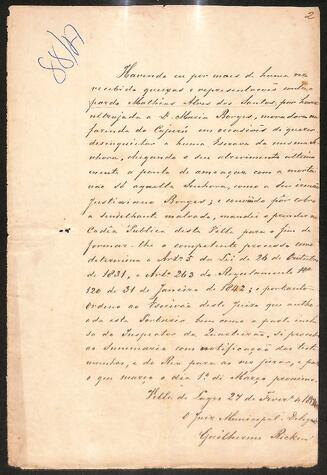 2
Havendo eu por mais de huma vez
recebido queixas e representações contra o
pardo Mathias Alves dos Santos, por haver
ultrajado a D. Maria Borges, moradora na
fazenda do Cajurú em occasiões de querer
desinquietar a huma Escrava da mesma Se-
nhora, chegando o seu atrevimento ultima
mente a ponto de ameaçar com a morte
não só aquella Senhora, como a seu irmão
Justiniano Borges; e convindo pôr cobro
a semelhante malvado, mandei o prender na
Cadêa Publica desta Villa para o fim de
formar-lhe o competente processo como
determina o Artº 5 da Lei de 26 de Outubro
de 1831, e Artº 263 do Regulamento Nº
120 de 31 de Janeiro de 1842; e portanto
ordeno ao Escrivão deste Juizo que autho
ada esta Portaria bem como a parte inclu
sa do Inspector de Quarteirão, se proceda
ao Summario com notificação das teste
munhas, e do Reo para as ver jurar, e para
o que marco o dia 1º de Março proximo.
Villa de Lages 27 de Fever.º de
O Juiz Municipal e Delegado
Guilherme Ricken